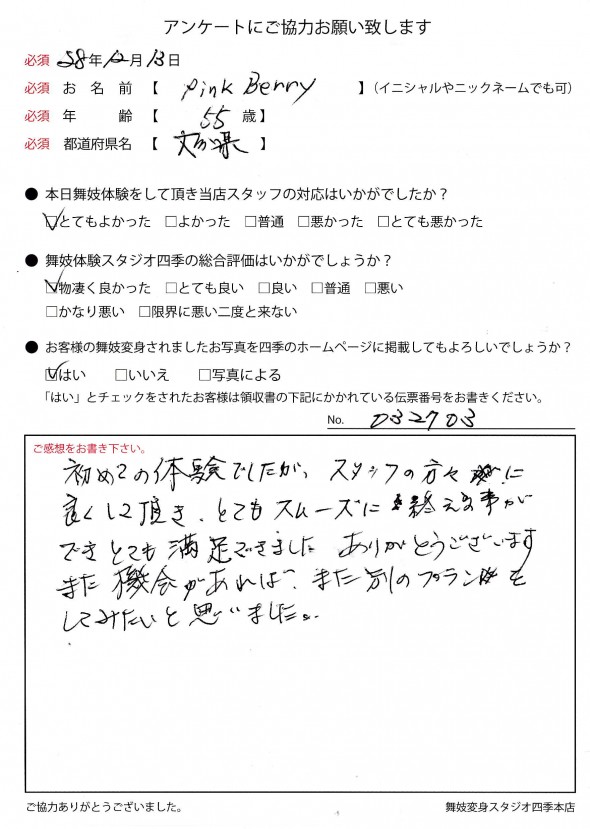 アンケートにご協力お願い致します
必須 28年12月13日
必須 お名前【 Pink Berry 】(イニシャルやニックネームでも可)
必須 年齢【 55歳】
必須 都道府県名【 県】
● 本日舞妓体験をして頂き当店スタッフの対応はいかがでしたか？
☑とてもよかった □よかった □普通 □悪かった □とても悪かった
● 舞妓体験スタジオ四季の総合評価はいかがでしょうか？
☑物凄く良かった □とても良い □良い □普通 □悪い
□かなり悪い □限界に悪い二度と来ない
● お客様の舞妓変身されましたお写真を四季のホームページに掲載してもよろしいでしょうか？
☑はい □いいえ □写真による
「はい」とチェックをされたお客様は領収書の下記にかかれている伝票番号をお書きください。
No. 032703
ご感想をお書き下さい。
初めての体験でしたが、スタッフの方々に
良くして頂き、とてもスムーズに終える事が
できとても満足できました ありがとうございます
また機会があれば、また別のプランを
してみたいと思いました。
ご協力ありがとうございました。
舞妓変身スタジオ四季本店